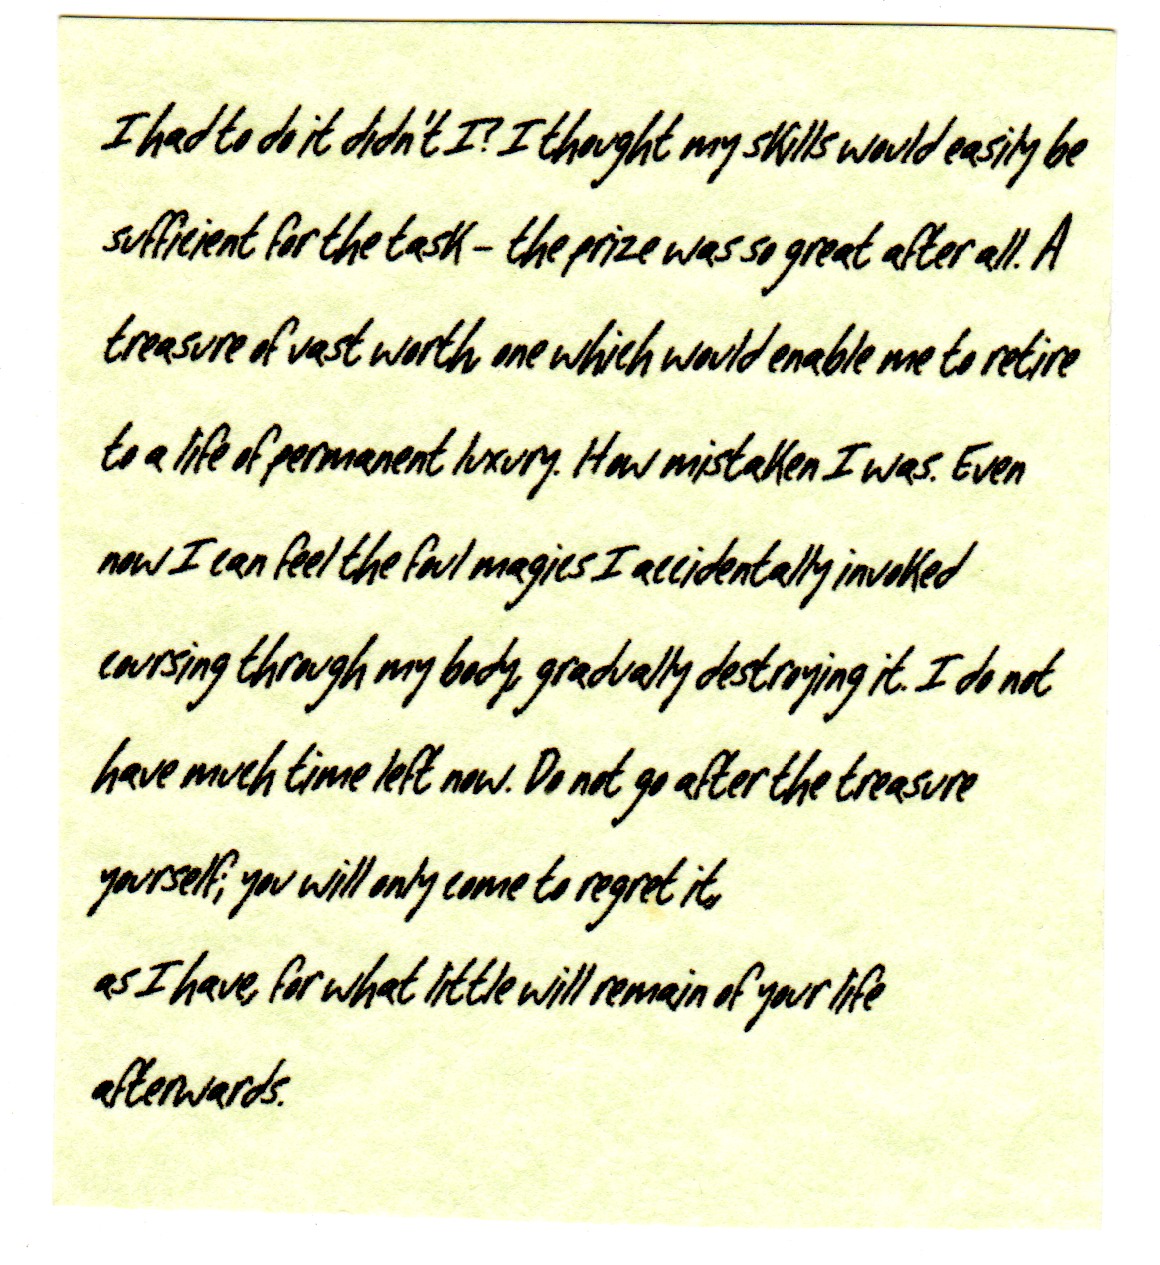 I had to do it didn't I? I thought my skills would easily be
sufficient for the task – the prize was so great after all. A
treasure of vast worth, one which would enable me to retire
to a life of permanent luxury. How mistaken I was. Even
now I can feel the foul magics I accidentally invoked
coursing through my body, gradually destroying it. I do not
have much time left now. Do not go after the treasure
yourself; you will only come to regret it,
as I have, for what little will remain of your life
afterwards.